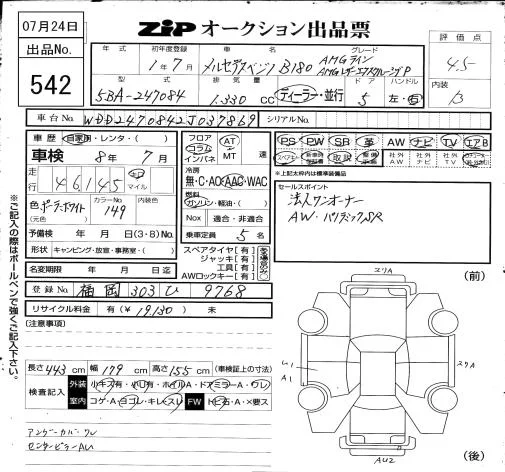 07月24日
ZIP オークション出品票
出品No.
542
年式 初年度登録 車名 グレード
1年7月 メルセデスベンツ B180 AMGライン
型式 排気量
5BA-247084 1.330 CC ディーラー・並行 5 左・右
ドア ハンドル
評価点
4.5
内装
B
車台No. W1D2470842J037869 シリアルNo.
車歴 自家用・レンタ・( )
車検 8年7月
走行 46,145 km マイル
色 ポーラーホワイト カラーNo. 149 内装色
(元色)
予備検 年 月 日(3・8)No.
形状 キャンピング・放室・事務室・( )
名変期限 年 月 日迄
登録No. 福岡 303 ひ 9768
リサイクル料金 有(¥19,130) 未
フロア コラム インパネ
AT MT 速
冷房
無・C・AC・AAC・WAC
燃料
ガソリン・軽油・( )
Nox 適合・非適合
乗車定員 5名
スペアタイヤ[有]
ジャッキ[有]
工具[有]
AWロックキー[有]
PS PW SR 革 AW ナビ TV エアB
スペアキー 取説 社外AW 社外ナビ 社外TV
※上記太枠内は標準装備品
セールスポイント
法人ワンオーナー
(注意事項)
長さ 443 cm 幅 179 cm 高さ 155 cm (車検証上の寸法)
検査記入
外装 小キズ有・小凹有・ホイルA・ドアミラーA・ワレ
室内 コゲ・A・ヨゴレ・キレ・スレ FW トビ石・A・×要ス
アンダーカバーワレ
センターピラーAU
※ご記入の際はボールペンで強くご記入下さい。
(前)
スリA
A1
スリA
AU2
(後)